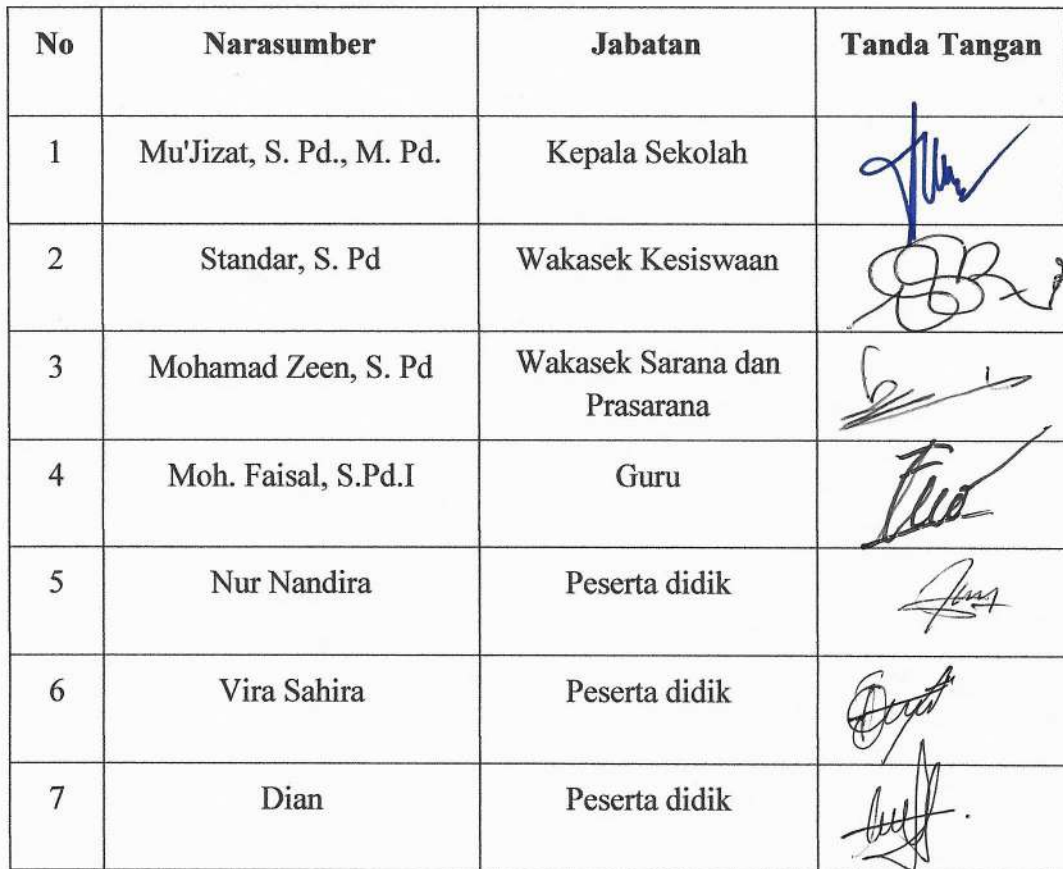 No Narasumber Jabatan Tanda Tangan
1 Mu'Jizat, S. Pd., M. Pd. Kepala Sekolah
2 Standar, S. Pd Wakasek Kesiswaan
3 Mohamad Zeen, S. Pd Wakasek Sarana dan
Prasarana
4 Moh. Faisal, S.Pd.I Guru
5 Nur Nandira Peserta didik
6 Vira Sahira Peserta didik
7 Dian Peserta didik